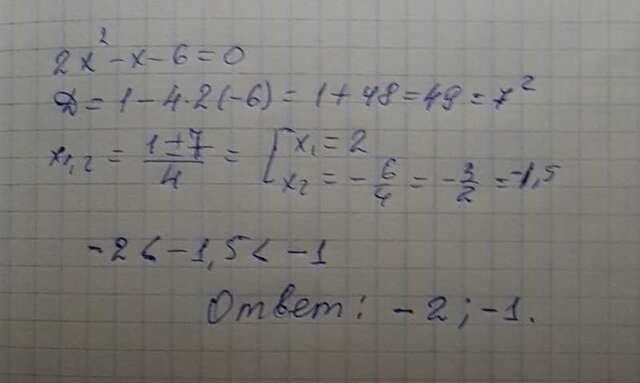 2x² - x - 6 = 0
D = 1 - 4·2(-6) = 1 + 48 = 49 = 7²
x₁,₂ = (1±7)/4 = [x₁ = 2
x₂ = -6/4 = -3/2 = -1,5
-2 < -1,5 < -1
Ответ: -2; -1.